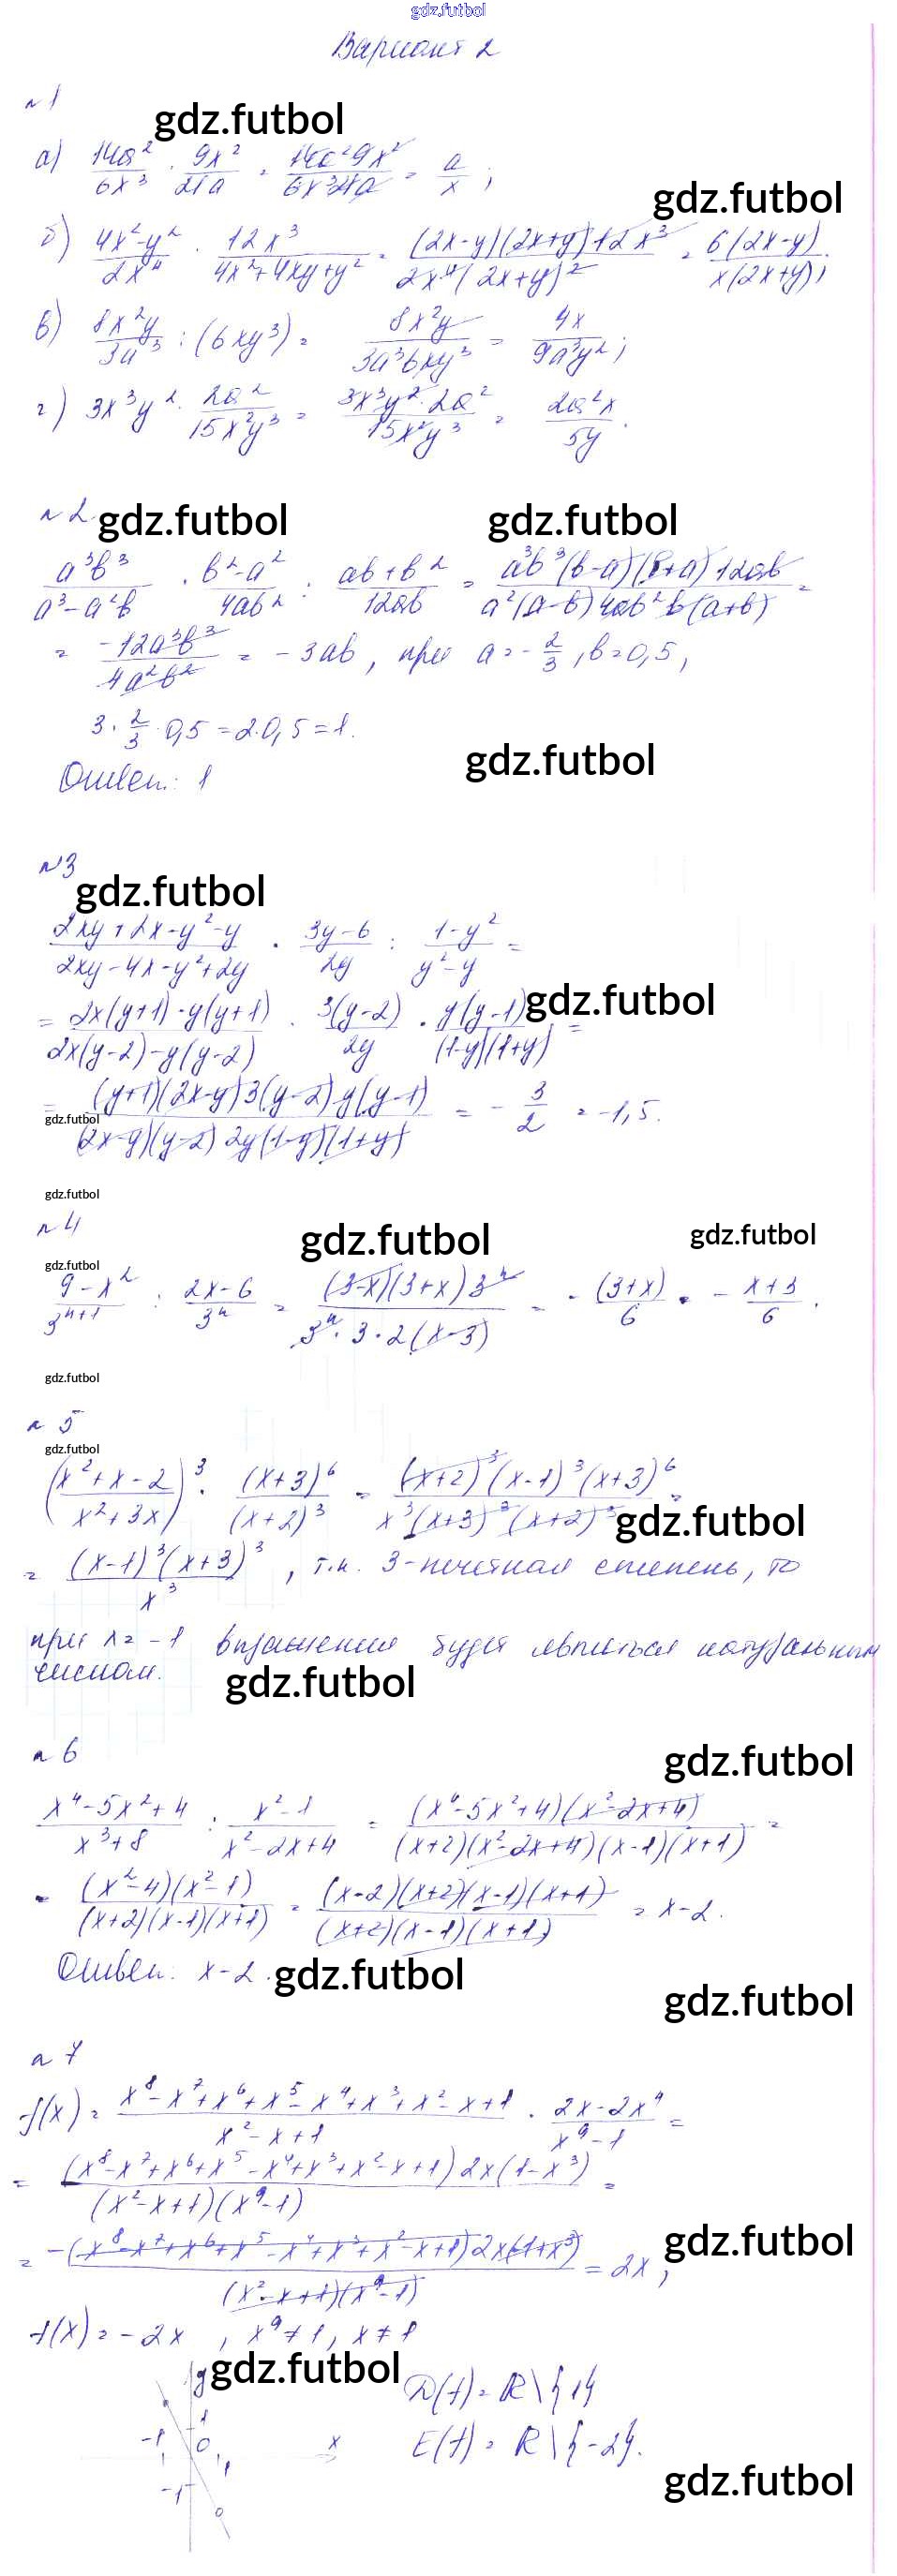 gdz.futbol
Вариант 2
№1
gdz.futbol
а) 14a²/6x³ · 9x²/21a = 14a²9x²/6x³21a = a/x ;
gdz.futbol
б) 4x²-y²/2x⁴ · 12x³/4x²+4xy+y² = (2x-y)(2x+y)12x³/2x⁴(2x+y)² = 6(2x-y)/x(2x+y) ;
в) 8x²y/3a³ : (6xy³) = 8x²y/3a³6xy³ = 4x/9a³y² ;
г) 3x³y² · 2a²/15x²y³ = 3x³y²·2a²/15x²y³ = 2a²x/5y .
№2 gdz.futbol gdz.futbol
a³b³/a³-a²b · b²-a²/4ab² : ab+b²/12ab = a³b³(b-a)(b+a)12ab/a²(a-b)4ab²b(a+b) =
= -12a³b³/4a²b² = -3ab, при a=-2/3, b=0,5,
3·2/3·0,5=2·0,5=1.
gdz.futbol
Ответ: 1
№3
gdz.futbol
2xy+2x-y²-y/2xy-4x-y²+2y · 3y-6/2y : 1-y²/y²-y =
= 2x(y+1)-y(y+1)/2x(y-2)-y(y-2) · 3(y-2)/2y · y(y-1)/(1-y)(1+y) = gdz.futbol
= (y+1)(2x-y)3(y-2)y(y-1)/(2x-y)(y-2)2y(1-y)(1+y) = -3/2 = -1,5.
gdz.futbol
gdz.futbol
№4
gdz.futbol gdz.futbol
gdz.futbol
9-x²/3ⁿ⁺¹ : 2x-6/3ⁿ = (3-x)(3+x)3ⁿ/3ⁿ·3·2(x-3) = -(3+x)/6 = -x+3/6 .
gdz.futbol
№5
gdz.futbol
(x²+x-2/x²+3x)³ · (x+3)⁶/(x+2)³ = (x+2)³(x-1)³(x+3)⁶/x³(x+3)³(x+2)³ =
gdz.futbol
= (x-1)³(x+3)³/x³ , т.к. 3-нечетная степень, то
при x=-1 выражения будет являться натуральным
числом.
gdz.futbol
№6
gdz.futbol
x⁴-5x²+4/x³+8 : x²-1/x²-2x+4 = (x⁴-5x²+4)(x²-2x+4)/(x+2)(x²-2x+4)(x-1)(x+1) =
= (x²-4)(x²-1)/(x+2)(x-1)(x+1) = (x-2)(x+2)(x-1)(x+1)/(x+2)(x-1)(x+1) = x-2.
Ответ: x-2.
gdz.futbol
gdz.futbol
№7
f(x)= x⁸-x⁷+x⁶+x⁵-x⁴+x³+x²-x+1/x²-x+1 · 2x-2x⁴/x⁹-1 =
= (x⁸-x⁷+x⁶+x⁵-x⁴+x³+x²-x+1)2x(1-x³)/(x²-x+1)(x⁹-1) =
gdz.futbol
= -(x⁸-x⁷+x⁶+x⁵-x⁴+x³+x²-x+1)2x(-1+x³)/(x²-x+1)(x⁹-1) = 2x,
f(x)=-2x , x⁹≠1, x≠1
y gdz.futbol D(f)=R\{1}
1
-1 0 x E(f)=R\{-2}.
1
-1
gdz.futbol